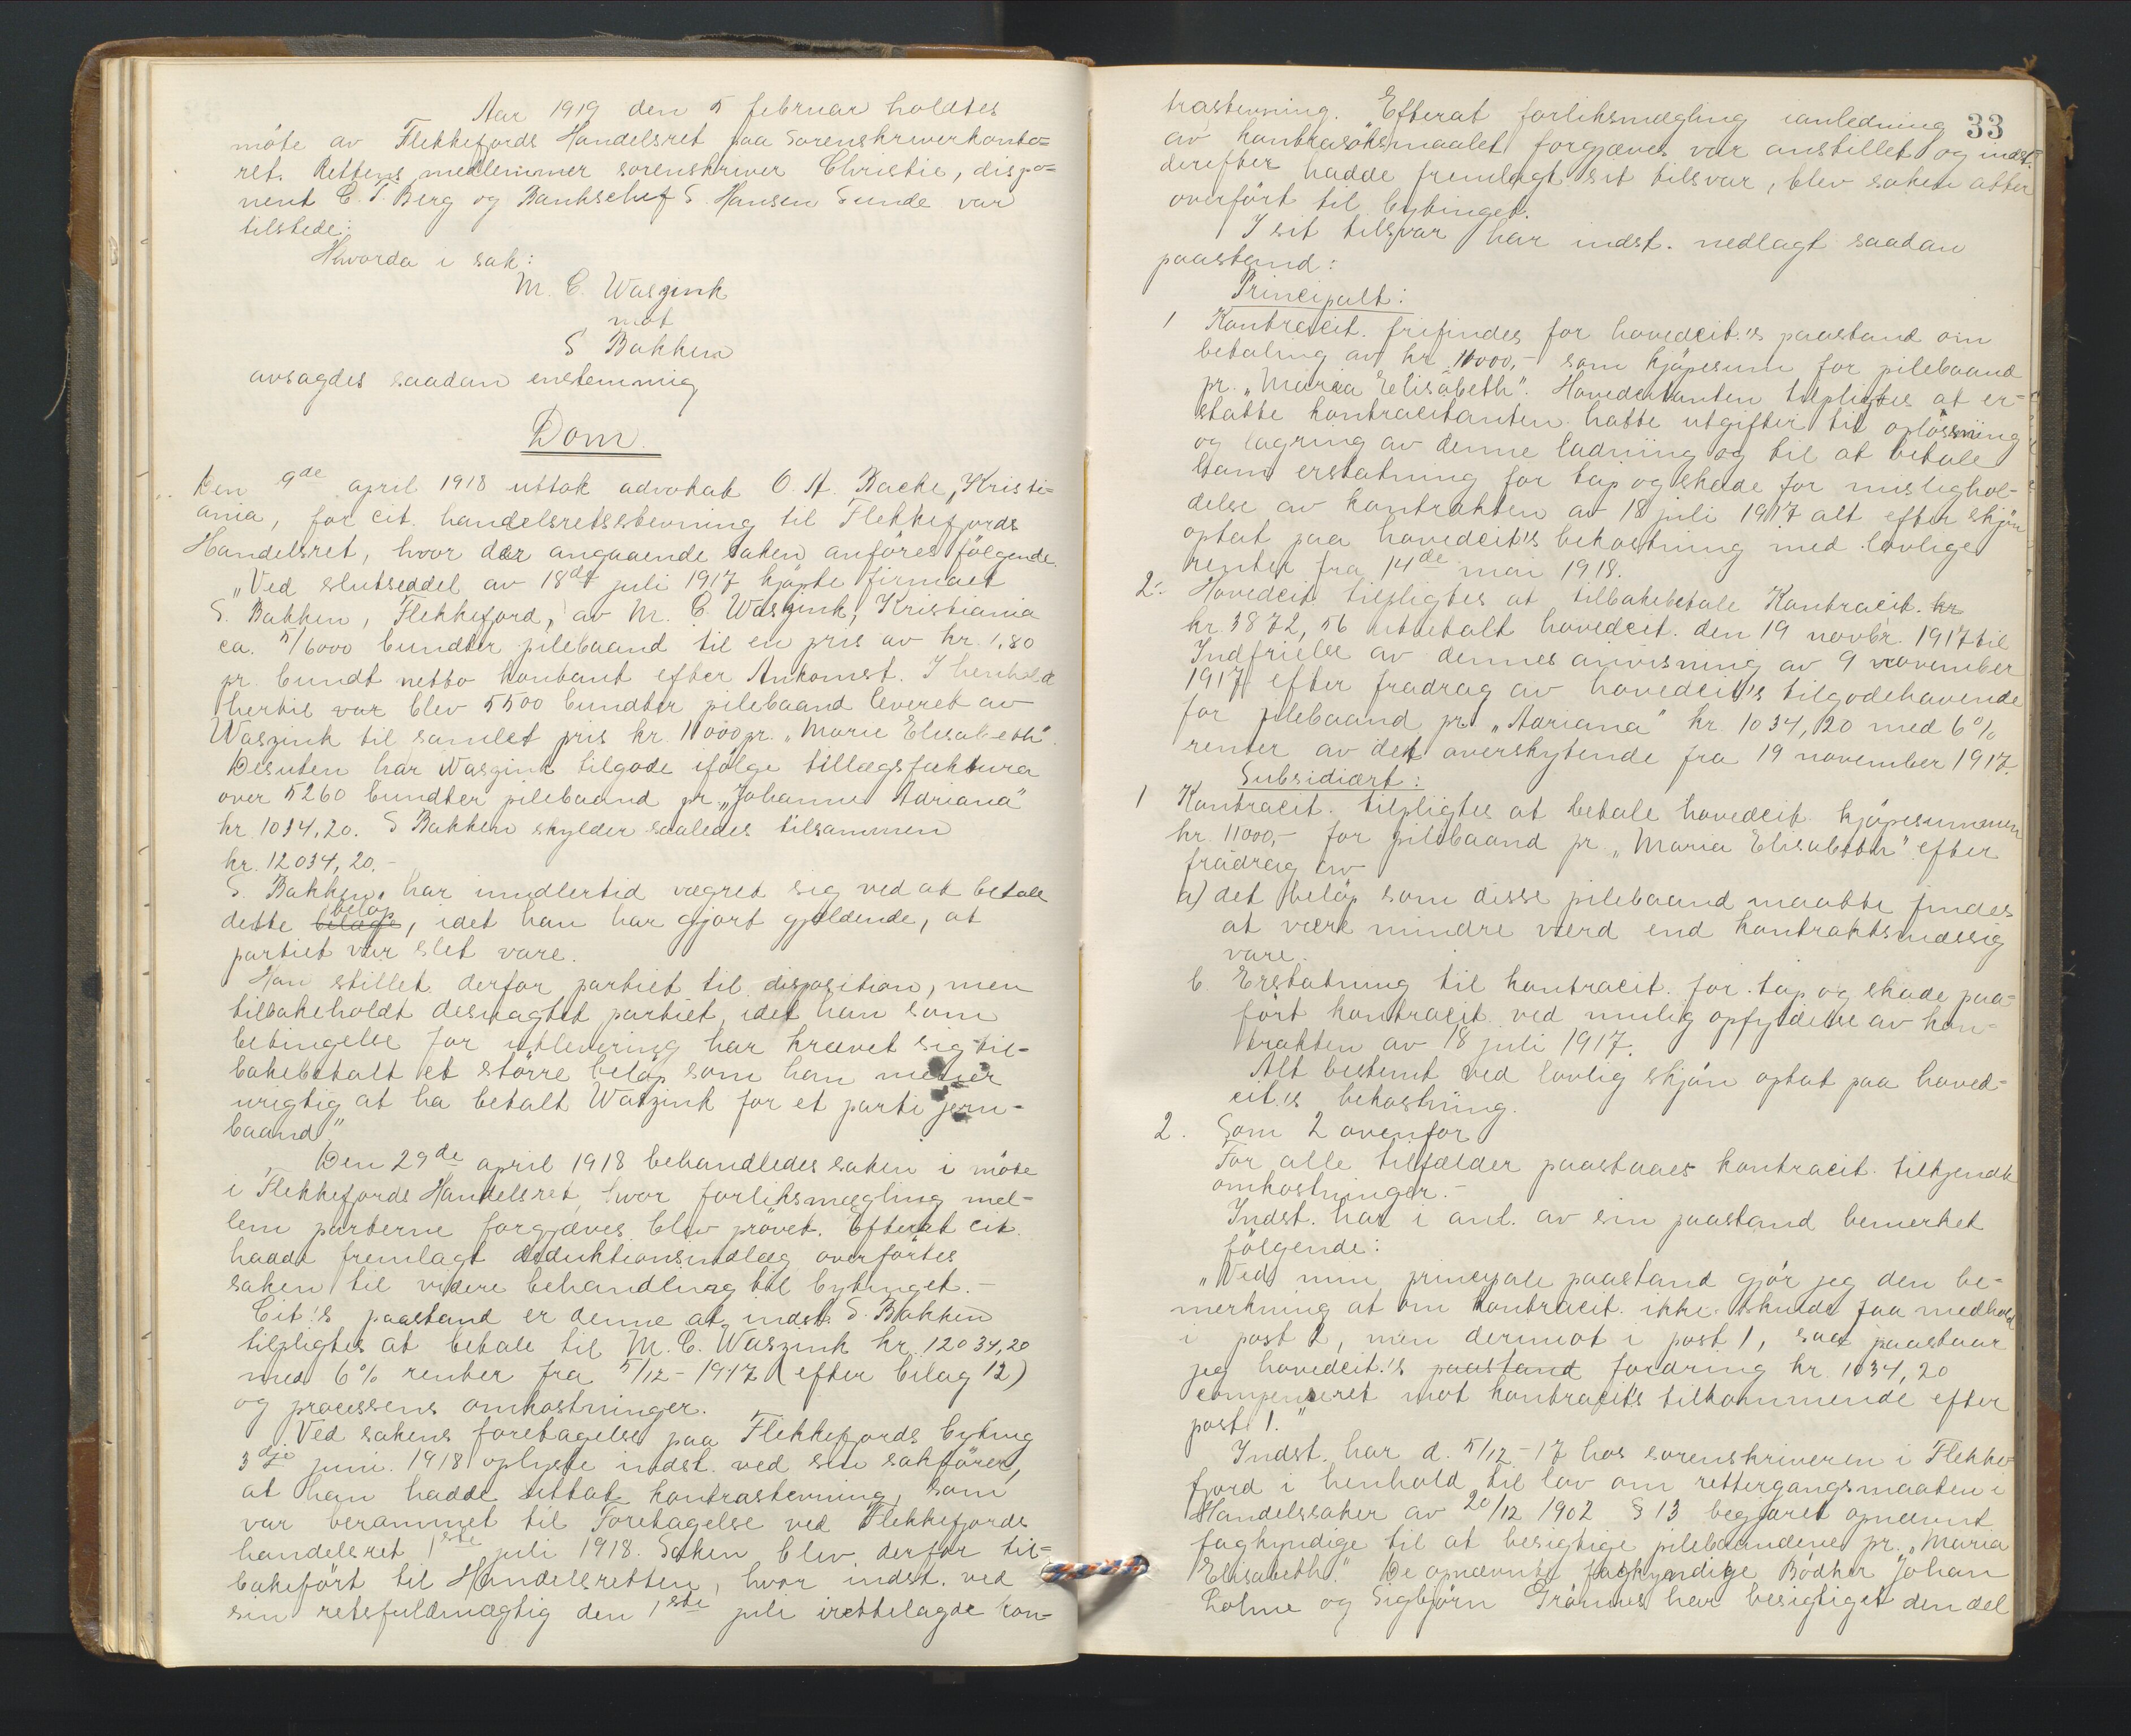 Aar 1919 den 5 februar holdtes
möte av Flekkefjords Handelsret paa Sorenskriverkonto-
ret. Rettens medlemmer sorenskriver Christie, dispo-
nent C. T. Berg og Bankschef S. Hansen Sunde var
tilstede:
Hvorda i sak:
M. C. Waszink
mot
S Bakken
avsagdes saadan enstemmig
Dom.
Den 9de april 1918 uttok advokat O. A. Bache, Kristi-
ania, for cit. handelsretsstevning til Flekkefjords
Handelsret, hvor der angaaende saken anföres fölgende.
"Ved slutseddel av 18de juli 1917 kjöpte firmaet
S. Bakken, Flekkefjord, av M. C. Waszink, Kristiania
ca. 5/6000 bundter pilebaand til en pris av kr. 1,80
pr. bundt netto kontant efter Ankomst. I henhold
hertil var blev 5500 bundter pilebaand leveret av
Waszink til samlet pris kr. 11000 pr. "Marie Elisabeth".
Desuten har Waszink tilgode ifölge tillægsfaktura
over 5260 bundter pilebaand pr. "Johanne Adriana"
kr. 1034.20. S Bakken skylder saaledes tilsammen
kr. 12034,20.-
S. Bakken har imidlertid vægret sig ved at betale
dette bilage belöp, idet han har gjort gjældende, at
partiet var slet vare.
Han stillet derfor partiet til disposition, men
tilbakeholdt desuagtet partiet, idet han som
betingelse for utlevering har krævet sig til-
bakebetalt et större belöp som han mener
urigtig at ha betalt Waszink for et parti jern-
baand"
Den 29de april 1918 behandledes saken i möte
i Flekkefjords Handelsret, hvor forliksmægling mel-
lem parterne forgjæves blev prövet. Efterat cit.
hadde fremlagt deduktionsindlæg overförtes
saken til videre behandling til bytinget.-
Cit.'s paastand er denne at indst. S. Bakken
tilpligtes at betale til M. C. Waszink kr. 12034,20
med 6% renter fra 5/12-1917 (efter bilag 12)
og processens omkostninger.
Ved sakens foretagelse paa Flekkefjords byting
3dje juni 1918 oplyste indst. ved sin sakförer,
at han hadde uttat kontrastevning, som
var berammet til Foretagelse ved Flekkefjords
handelsret 1ste juli 1918. Saken blev derfor til-
bakeført til Handelsretten, hvor indst. ved
sin retsfuldmægtig den 1ste juli irettelagde kon-
33
trastevning. Efterat forliksmægling ianledning
av kontrasöksmaalet forgjæves var anstillet og indst.
derefter hadde fremlagt sit tilsvar, blev saken atter
overfört til bytinget.
I sit tilsvar har indst. nedlagt saadan
paastand:
Principalt:
1 Kontracit. frifindes for hovedcit.'s paastand om
betaling av kr. 11000,- som kjöpesum for pilebaand
pr. "Maria Elisabeth". Hovedcitanten tilpligtes at er-
statte kontracitanten hatte utgifter til oplossning
og lagring av denne ladning og til at betale
ham erstatning for tap og skade for misslighol-
delse av kontrakten av 18 juli 1917 alt efter skjön
optat paa hovedcit's bekostning med lovlige
renter fra 14de mai 1918.
2. Hovedcit. tilpligtes at tilbakebetale Kontracit. kr
kr. 3872,56 utbetalt hovedcit. den 19 novbr. 1917 til
Indfrielse av dennes anvisning av 9 november
1917 efter fradrag av hovedcit's tilgodehavende
for pilebaand pr. "Adriana" kr 1034,20 med 6%
renter av det overskytende fra 19 november 1917.
Subsidiært:
1 Kontracit. tilpligtes at betale hovedcit. kjöpesummen
kr. 11000,- for pilebaand pr. "Maria Elisabeth" efter
fradrag av
a) det belöp som disse pilebaand maatte findes
at være mindre værd end kontraktsmæssig
vare.
b. Erstatning til kontracit. for tap og skade paa-
fört kontracit. ved mislig opfyldelse av kon-
trakten av 18 juli 1917.
Alt bestemt ved lovlig skjön optat paa hoved-
cit.'s bekostning.
2. Som 2 ovenfor
For alle tilfælder paastaaes kontracit. tilkjendt
omkostninger.-
Indst. har i anl. av sin paastand bemerket
fölgende:
"Ved min principale paastand gjör jeg den be-
merkning at om kontracit. ikke skulde faa medhold
i post 2, men derimot i post 1, saa paastaar
jeg hovedcit.'s paastand fordring kr. 1034,20
compenseret mot kontracit's tilkommende efter
post 1."
Indst. har d. 5/12-17 hos sorenskriveren i Flekke-
fjord i henhold til lov om rettergangsmaaten i
Handelssaker av 20/12 1902 § 13 begjæret opnævnt
fagkyndige til at besigtige pilebaandene pr. "Maria
Elisabeth." De opnævnte fagkyndige Bödker Johan
Lohne og Sigbjörn Grönnes har besigtiget den del